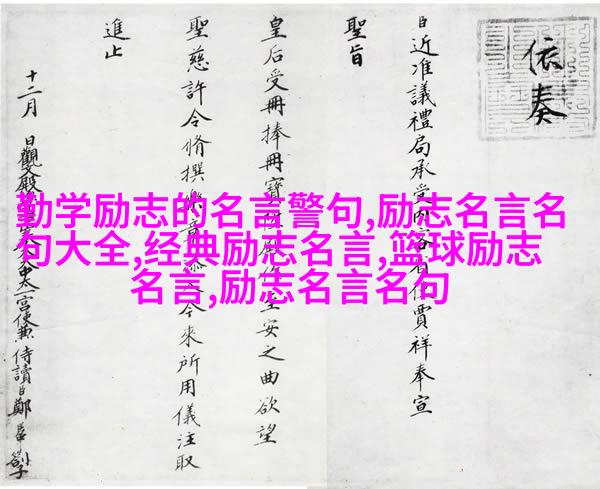 勤学励志的名言警句,励志名言名
句大全,经典励志名言,篮球励志
名言,励志名言名句
依奏
臣近准議禮局承受賈祥奉宣
聖旨
皇后受冊捧冊寶至安之曲欲望
聖慈許令脩撰樂今來所用儀注取
進止
十二月 日觀文殿太一宮使兼侍讀臣鄭